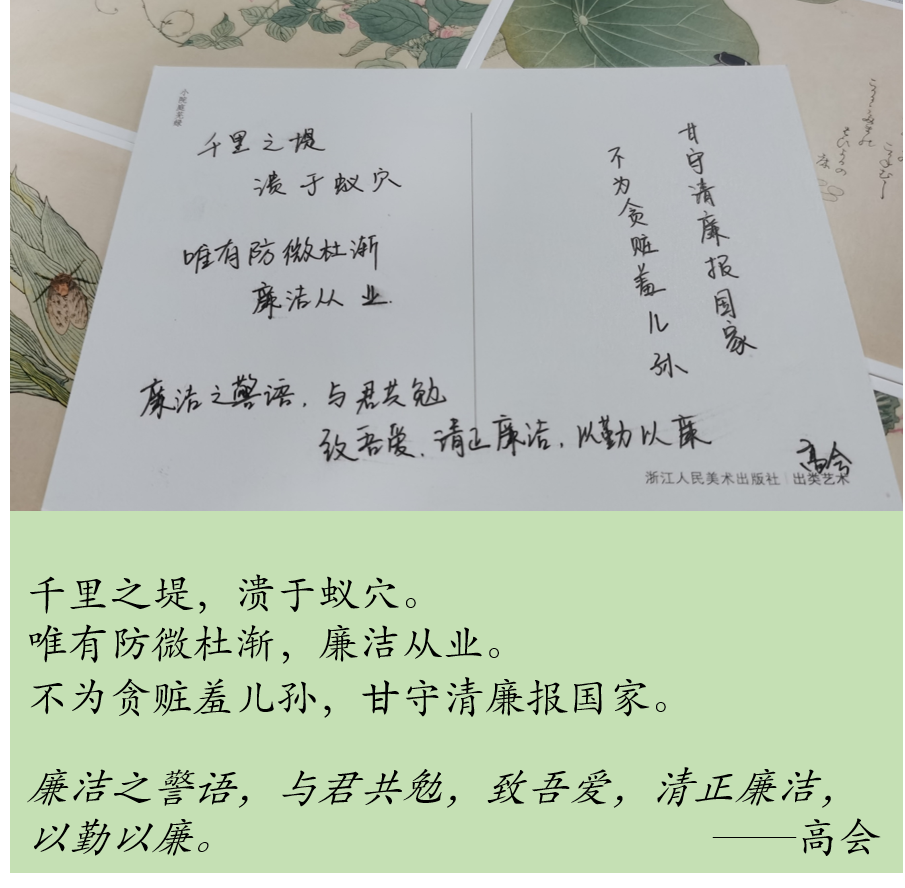 小院莫苤绿
千里之堤
溃于蚁穴
唯有防微杜渐
廉洁从业.
甘守清廉报国家
不为贪赃羞儿孙
廉洁之警语,与君共勉
致吾爱,清正廉洁,以勤以廉
高会
浙江人民美术出版社 | 出类艺术
千里之堤，溃于蚁穴。
唯有防微杜渐，廉洁从业。
不为贪赃羞儿孙，甘守清廉报国家。
廉洁之警语，与君共勉，致吾爱，清正廉洁，
以勤以廉。
——高会